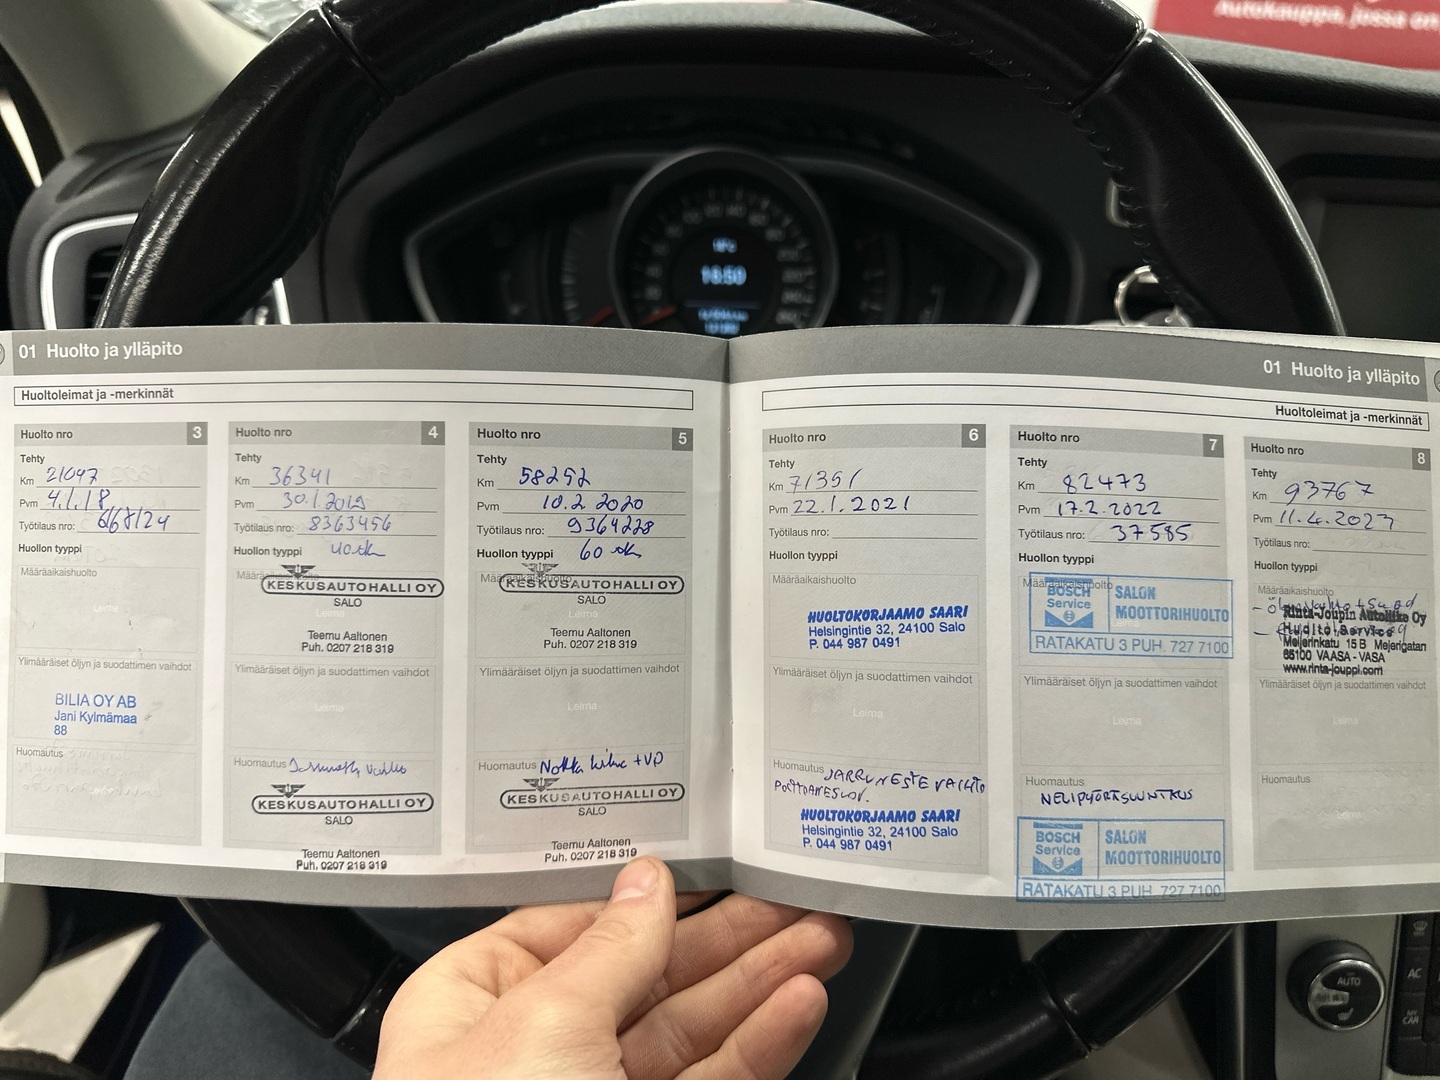 Autokauppa, jossa on
18:50
01 Huolto ja ylläpito
Huoltoleimat ja -merkinnät
Huolto nro 3
Tehty
Km 21047
Pvm 4.1.18
Työtilaus nro:
Huollon tyyppi
Määräaikaishuolto
Leima
Ylimääräiset öljyn ja suodattimen vaihdot
BILIA OY AB
Jani Kylmämaa
88
Huomautus
Huolto nro 4
Tehty
Km 36341
Pvm 30.1.2019
Työtilaus nro: 8363456
Huollon tyyppi
Määräaikaishuolto
KESKUSAUTOHALLI OY
SALO
Leima
Teemu Aaltonen
Puh. 0207 218 319
Ylimääräiset öljyn ja suodattimen vaihdot
Leima
Huomautus
KESKUSAUTOHALLI OY
SALO
Teemu Aaltonen
Puh. 0207 218 319
Huolto nro 5
Tehty
Km 58252
Pvm 10.2.2020
Työtilaus nro: 9364228
Huollon tyyppi 60
Määräaikaishuolto
KESKUSAUTOHALLI OY
SALO
Leima
Teemu Aaltonen
Puh. 0207 218 319
Ylimääräiset öljyn ja suodattimen vaihdot
Leima
Huomautus +VP
KESKUSAUTOHALLI OY
SALO
Teemu Aaltonen
Puh. 0207 218 319
01 Huolto ja ylläpito
Huoltoleimat ja -merkinnät
Huolto nro 6
Tehty
Km 71351
Pvm 22.1.2021
Työtilaus nro:
Huollon tyyppi
Määräaikaishuolto
HUOLTOKORJAAMO SAARI
Helsingintie 32, 24100 Salo
P. 044 987 0491
Ylimääräiset öljyn ja suodattimen vaihdot
Leima
Huomautus JARRUNESTE VAIHTO
HUOLTOKORJAAMO SAARI
Helsingintie 32, 24100 Salo
P. 044 987 0491
Huolto nro 7
Tehty
Km 82473
Pvm 17.2.2022
Työtilaus nro: 37585
Huollon tyyppi
Määräaikaishuolto
BOSCH
Service
SALON
MOOTTORIHUOLTO
RATAKATU 3 PUH. 727 7100
Ylimääräiset öljyn ja suodattimen vaihdot
Leima
Huomautus
NELIPYÖRÄSUUNTAUS
BOSCH
Service
SALON
MOOTTORIHUOLTO
RATAKATU 3 PUH. 727 7100
Huolto nro 8
Tehty
Km 93767
Pvm 11.4.2023
Työtilaus nro:
Huollon tyyppi
Määräaikaishuolto
Rinta-Joupin Autoliike Oy
Huolto-Service
Meijerinkatu 15 B Mejerigatan
65100 VAASA - VASA
www.rinta-jouppi.com
Ylimääräiset öljyn ja suodattimen vaihdot
Leima
Huomautus
AUTO
AC
MY
CAR